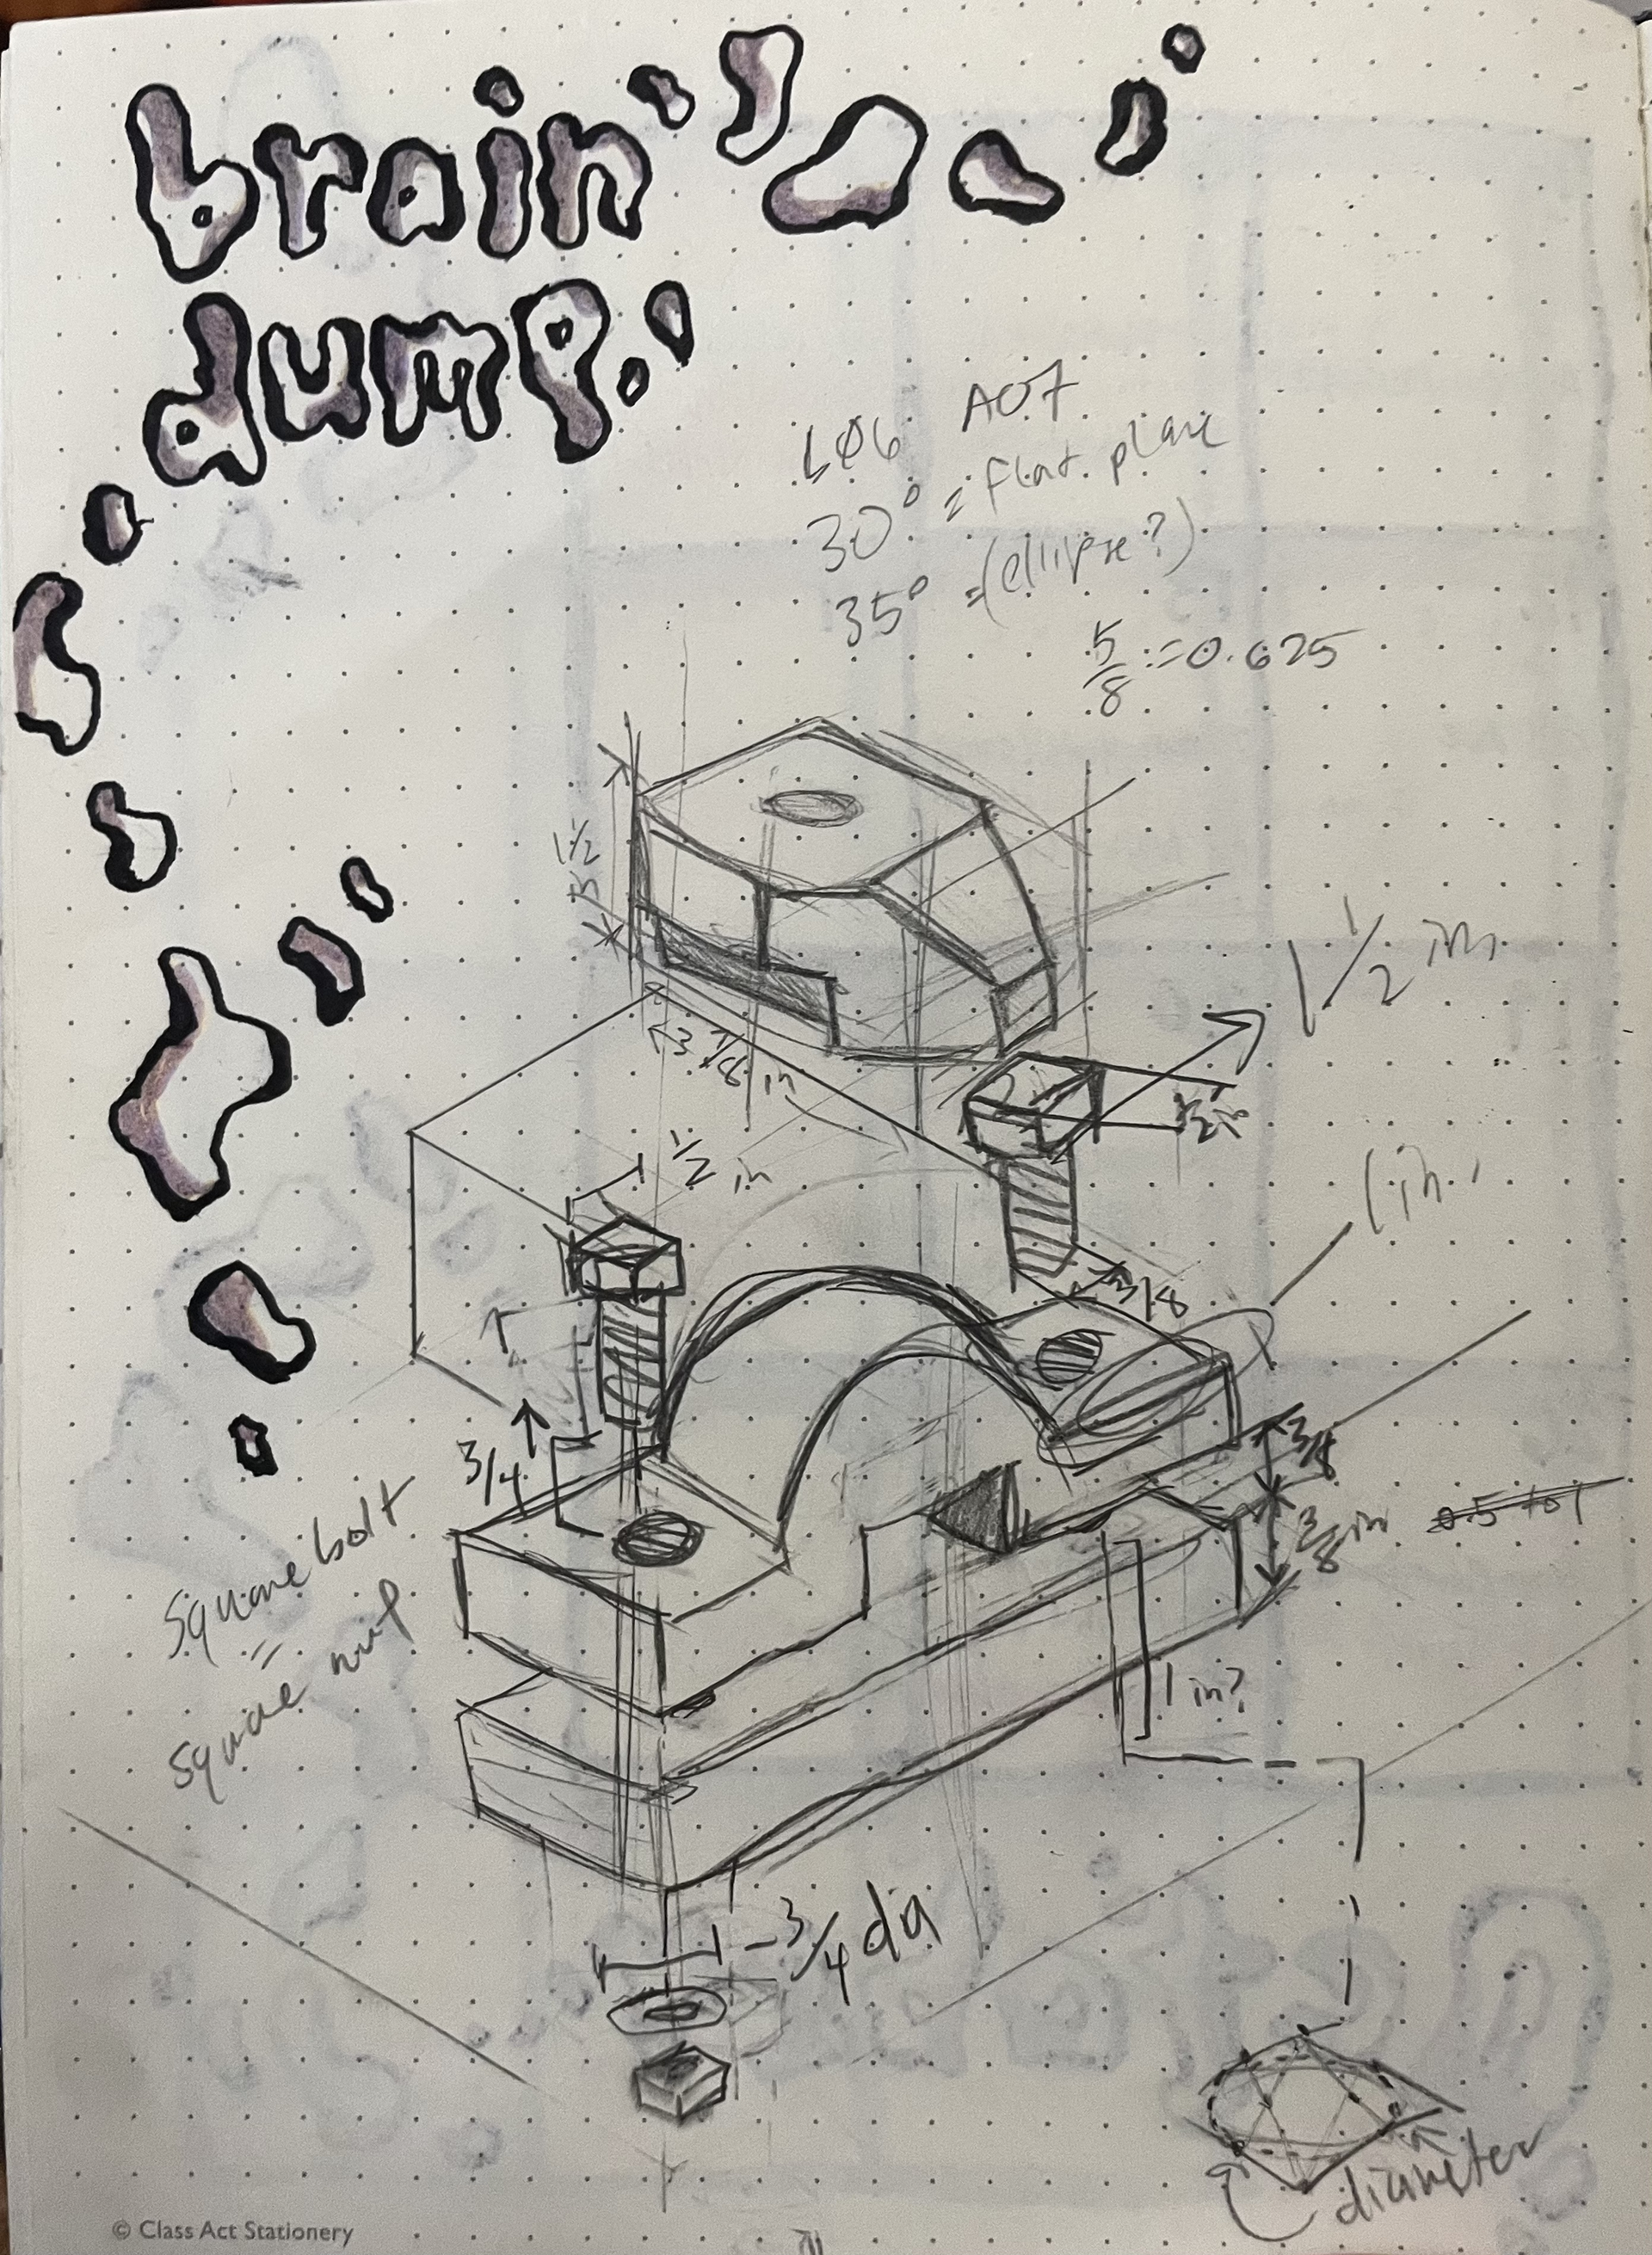 brain
dump.
L06 A07
30° = flat plane
35° = (ellipse?)
5/8 = 0.625
1 1/2
3 7/8 in
1 1/2 in
1/2 in
1/2 in
1 in.
3/8
3/4
3/8
3/8 in
Square bolt
=
square nut
1 in?
3/4 dia
diameter
© Class Act Stationery